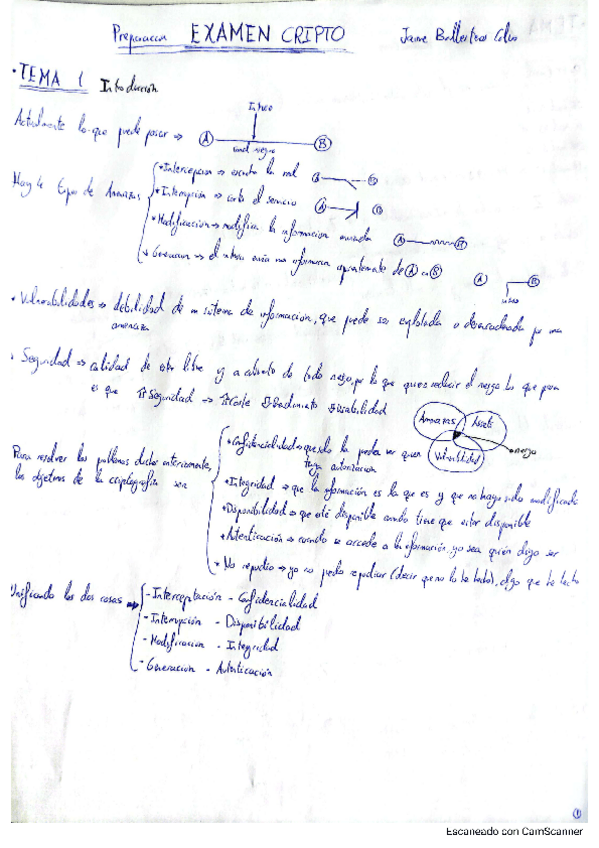 Preparacion EXAMEN CRIPTO Jaime Ballesteros
• TEMA 1 Introducción
Intruso
Actualmente lo que puede pasar ⇒ A B
canal seguro
Hay 4 tipos de Amenazas
• Intercepcion ⇒ escucha la red
• Interrupción ⇒ corta el servicio A B
• Modificacion ⇒ modifica la informacion enviada A B
• Generacion ⇒ el intruso envia una informacion aparentemente de A a B A B
intruso
• Vulnerabilidades ⇒ debilidad de un sistema de informacion, que puede ser explotada o desencadenada por una
amenaza
• Seguridad ⇒ calidad de estar libre y a cubierto de todo riesgo, por lo que quiere reducir el riesgo lo que pasa
es que ⇑ Seguridad → ⇑ Coste ⇓ Rendimiento ⇓ Usabilidad
Amenazas Assets
Vulnerabilidad riesgo
Para resolver los problemas dichos anteriormente,
los objetivos de la criptografia son
• Confidencialidad → que solo la pueda ver quien
tenga autorizacion
• Integridad → que la información es la que es y que no haya sido modificada
• Disponibilidad → que esté disponible cuando tiene que estar disponible
• Autenticación → cuando se accede a la información, yo sea quién digo ser
• No repudio → yo no puedo repudiar (decir que no lo he hecho), algo que he hecho
Unificando las dos cosas ⇒
- Interceptación - Confidencialidad
- Interrupción - Disponibilidad
- Modificacion - Integridad
- Generacion - Autenticación
1
Escaneado con CamScanner